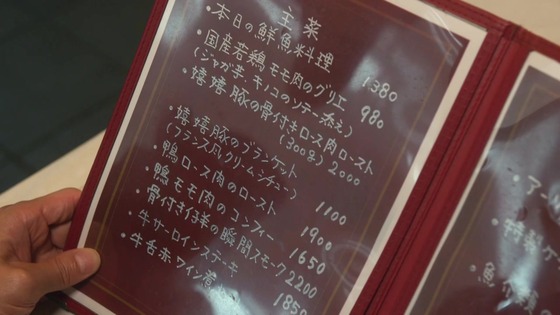 主菜
・本日の鮮魚料理 1380
・国産若鶏モモ肉のグリエ 980
(ジャガ芋、キノコのソテー添え)
・嬉嬉豚の骨付きロース肉ロースト
(300g) 2000
・嬉嬉豚のブランケット
(フランス風クリームシチュー) 1100
・鴨ロース肉のロースト 1900
・鴨モモ肉のコンフィー 1650
・骨付き仔羊の瞬間スモーク 2200
・牛サーロインステーキ 1850
・牛舌赤ワイン
・アー
・特製
・魚